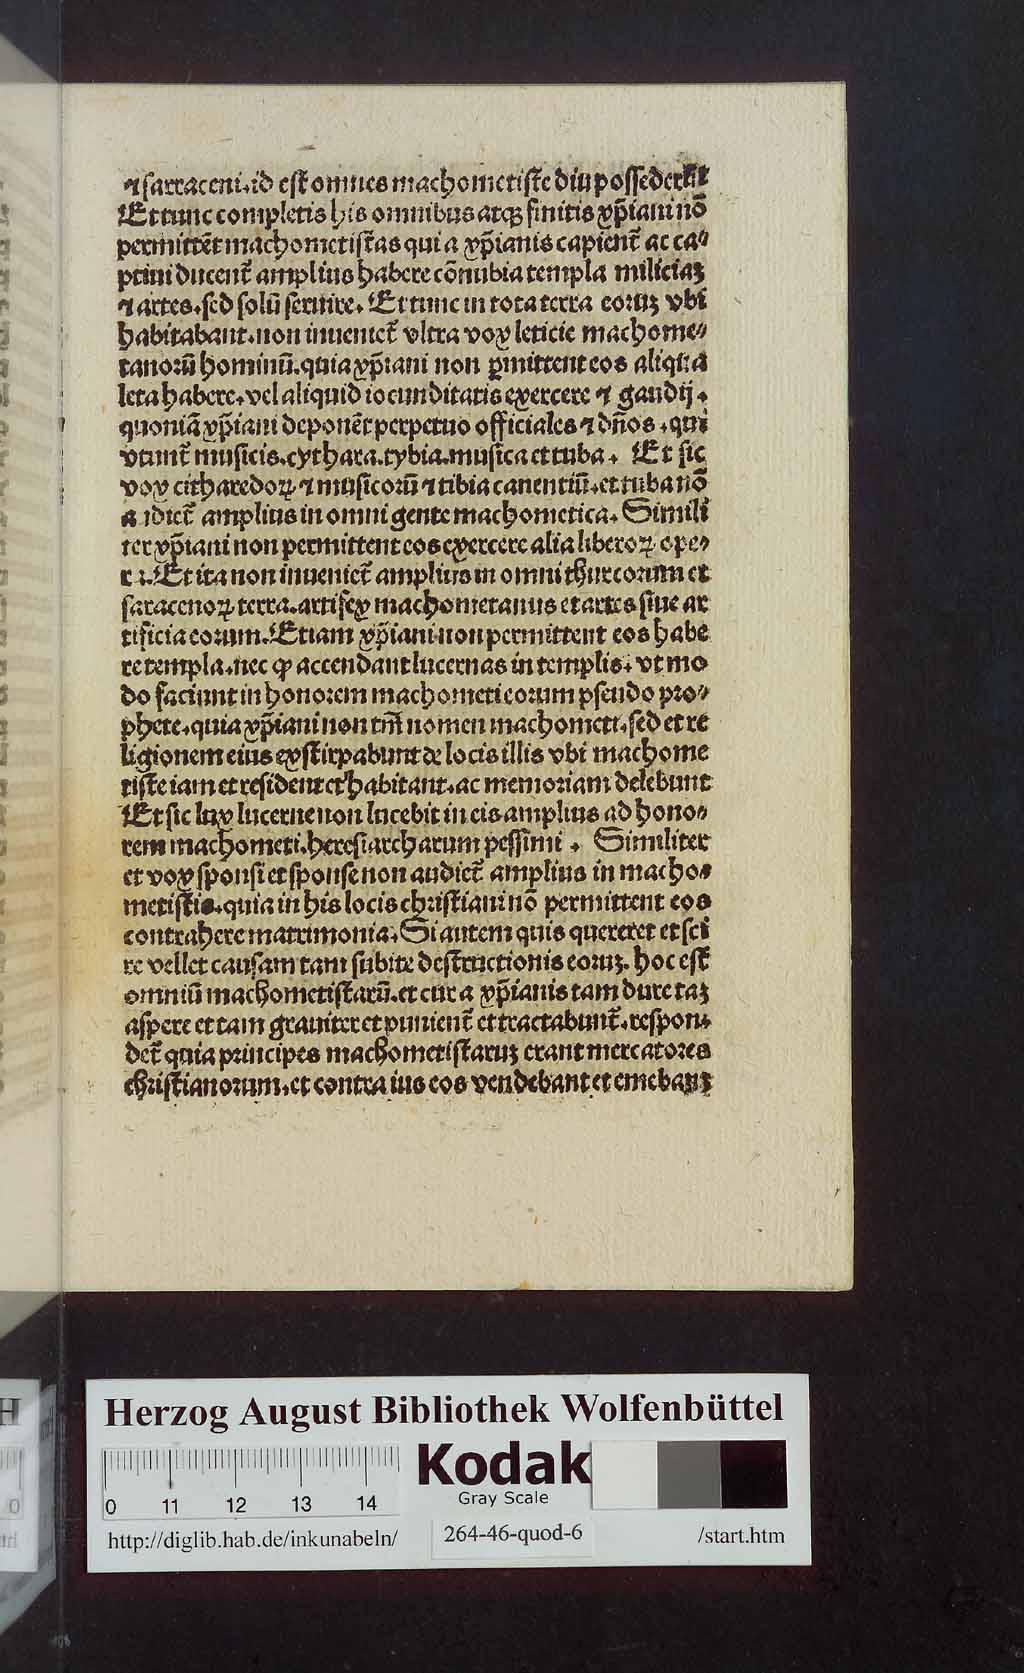 ⁊ sarraceni. id est omnes machometiste diu possederūt
Et tunc completis his omnibus atqꝫ finitis xp̄iani nō
permittēt machometistas qui a xp̄ianis capient᷑ ac ca⸗
ptiui ducent᷑ amplius habere cōnubia templa miliciaꝫ
⁊ artes. sed solū seruire. Et tunc in tota terra eoruꝫ vbi
habitabant. non inueniet᷑ vltra vox leticie machome⸗
tanorū hominū. quia xp̄iani non ꝑmittent eos aliqua
leta habere. vel aliquid iocunditatis exercere ⁊ gaudij.
quoniā xp̄iani deponēt perpetuo officiales ⁊ dn̄os. qui
vtunt᷑ musicis. cythara. tybia. musica et tuba. Et sic
vox citharedoꝝ ⁊ musicorū ⁊ tibia canentiū. et tuba nō
audiet᷑ amplius in omni gente machometica. Simili
ter xp̄iani non permittent eos exercere alia liberoꝝ ope⸗
ra. Et ita non inueniet᷑ amplius in omni thurcorum et
saracenoꝝ terra. artifex machometanus et artes siue ar
tificia eorum. Etiam xp̄iani non permittent eos habe
re templa. nec ꝙ accendant lucernas in templis. vt mo
do faciunt in honorem machometi eorum pseudo pro⸗
phete. quia xp̄iani non tm̄ nomen machometi. sed et re
ligionem eius exstirpabunt de locis illis vbi machome
tiste iam et resident et habitant. ac memoriam delebunt
Et sic lux lucerne non lucebit in eis amplius ad hono⸗
rem machometi. heresiarcharum pessimi. Similiter
et vox sponsi et sponse non audiet᷑ amplius in macho⸗
metistis. quia in his locis christiani nō permittent eos
contrahere matrimonia. Si autem quis quereret et sci
re vellet causam tam subite destructionis eoruꝫ. hoc est
omniū machometistarū. et cur a xp̄ianis tam dure taꝫ
aspere et tam grauiter et punient᷑ et tractabunt᷑. respon⸗
det᷑ quia principes machometistaruꝫ erant mercatores
christianorum. et contra ius eos vendebant et emebant
Herzog August Bibliothek Wolfenbüttel
Kodak
Gray Scale
0 11 12 13 14
http://diglib.hab.de/inkunabeln/ 264-46-quod-6 /start.htm